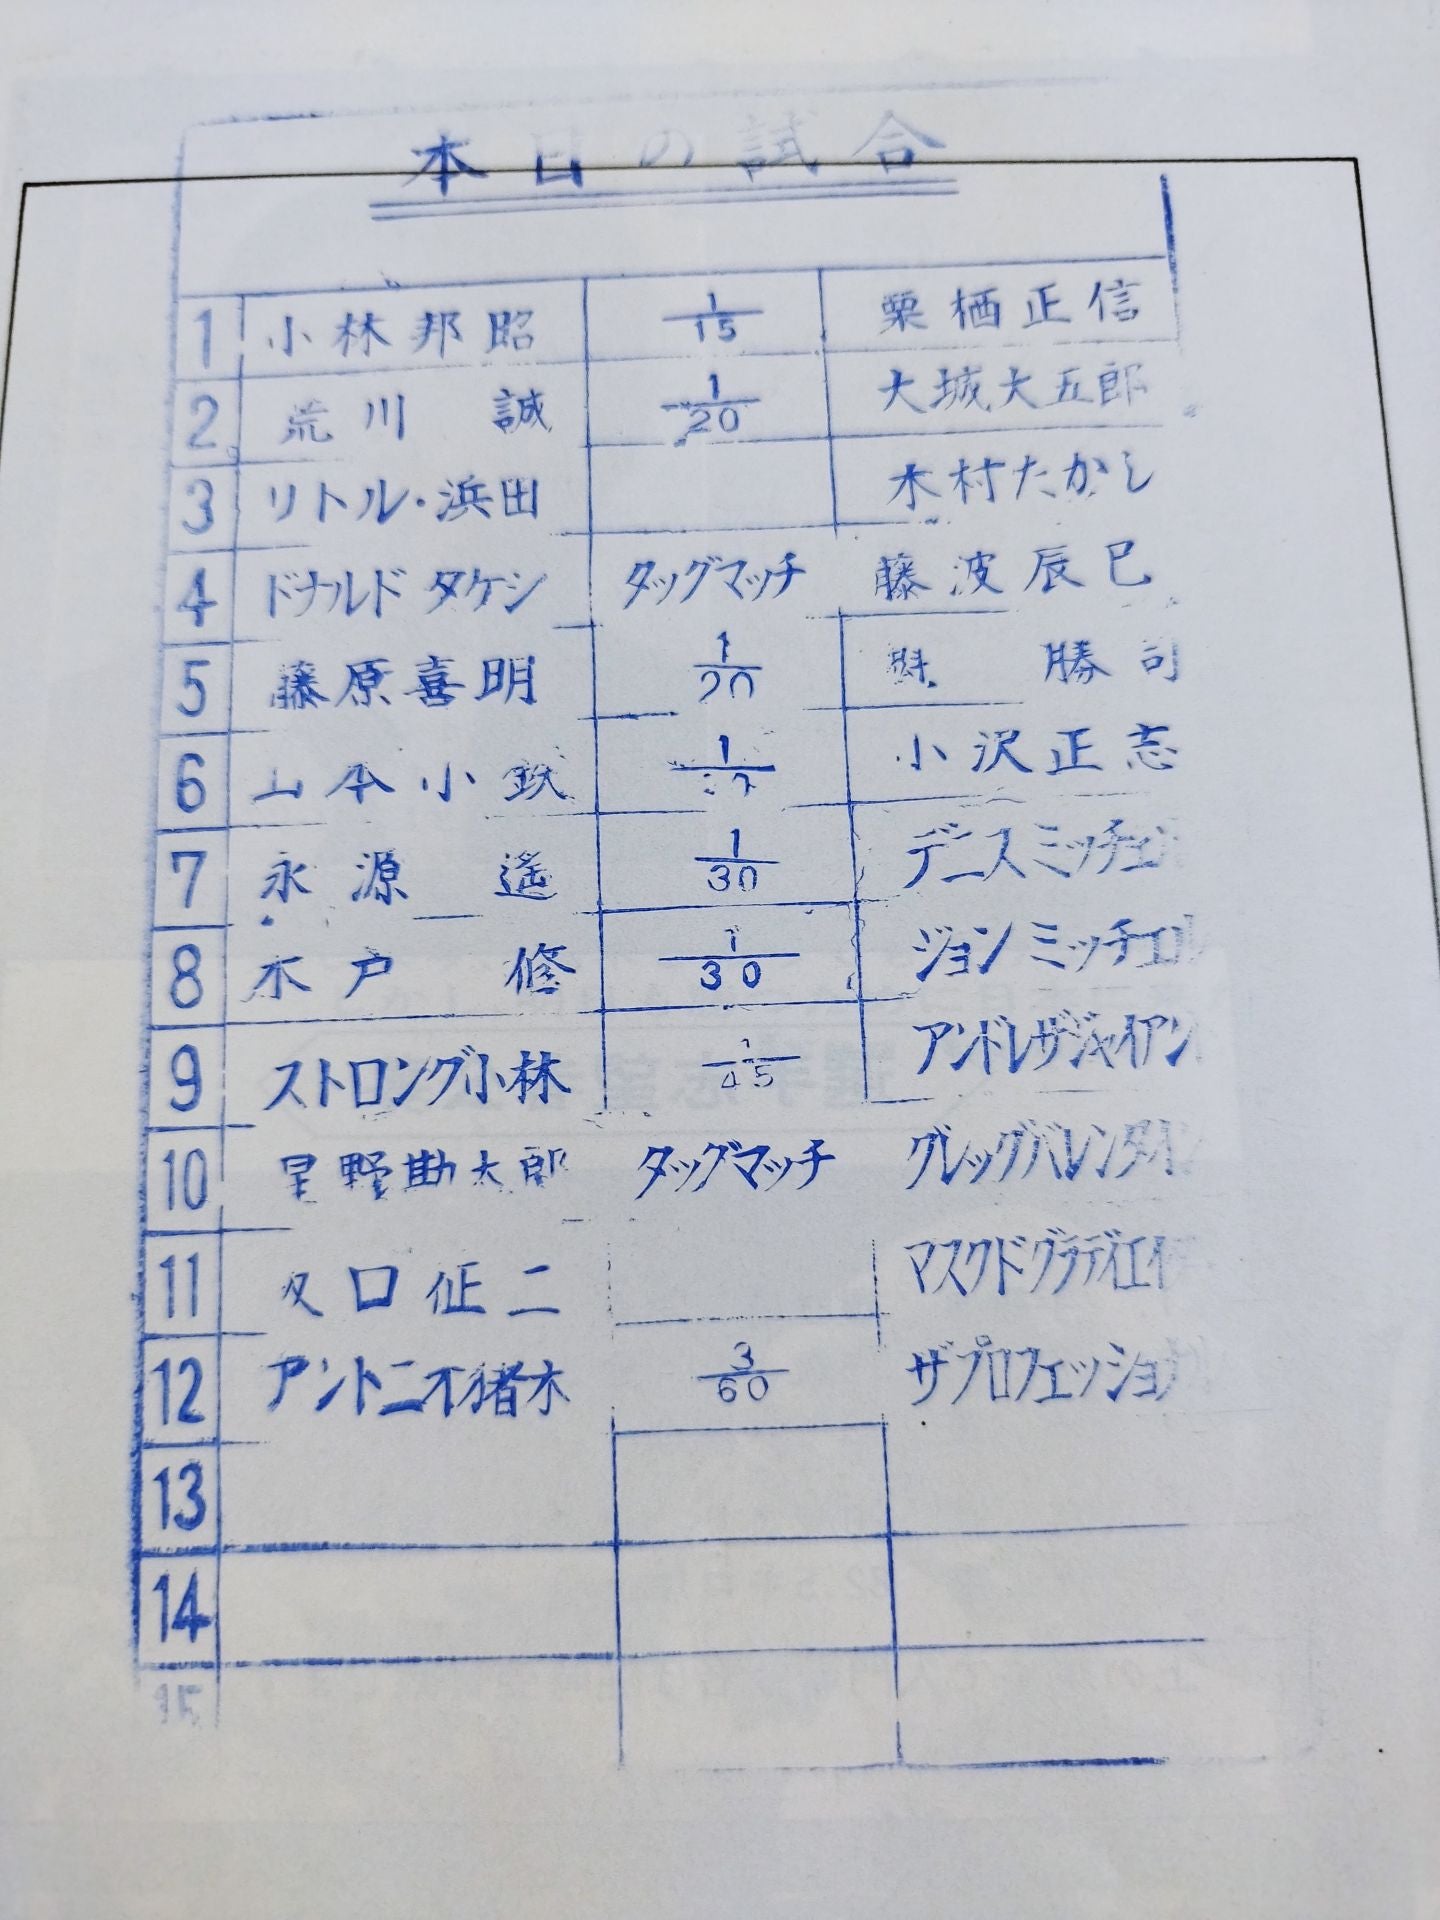 本日の試合
1 小林邦昭 1/15 栗栖正信
2 荒川 誠 1/20 大城大五郎
3 リトル・浜田 木村たかし
4 ドナルド タケシ タッグマッチ 藤波辰巳
5 藤原喜明 1/20 勝司
6 山本小鉄 1 小沢正志
7 永源 遙 1/30 デニスミッチェル
8 木戸 修 1/30 ジョン ミッチエル
9 ストロング小林 1/45 アンドレザジャイアン
10 星野勘太郎 タッグマッチ グレッグバレンタイン
11 口征二 マスクドグラディエイ
12 アントニオ猪木 3/60 ザプロフェッショナ
13
14
15